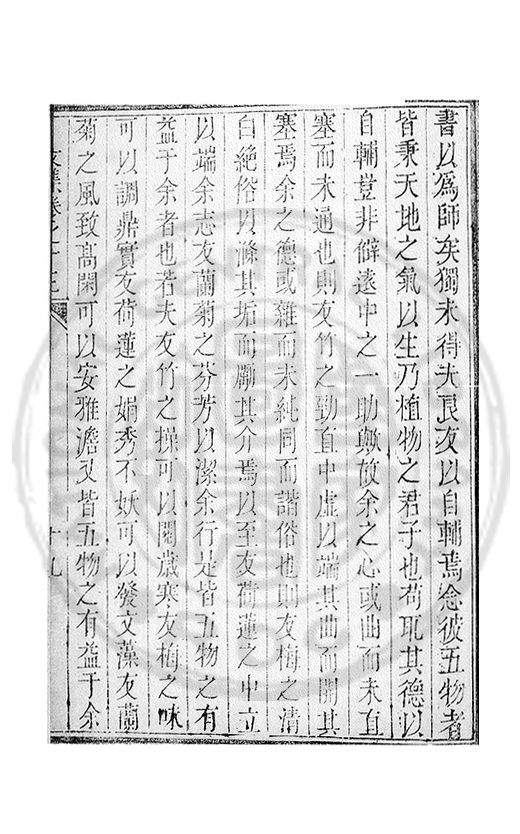 書以爲師矣獨未得夫良友以自輔焉念彼五物者
皆秉天地之氣以生乃植物之君子也苟取其德以
自輔豈非僻遠中之一助歟故余之心或曲而未直
塞而未通也則友竹之勁直中虛以端其曲而開其
塞焉余之德或雜而未純同而諧俗也則友梅之清
白絶俗以滌其垢而勵其介焉以至友荷蓮之中立
以端余志友蘭菊之芬芳以潔余行是皆五物之有
益于余者也若夫友竹之操可以閱歲寒友梅之味
可以調鼎實友荷蓮之娟秀不妖可以發文藻友蘭
菊之風致高閑可以安雅澹又皆五物之有益于余
文集卷之十三
十九